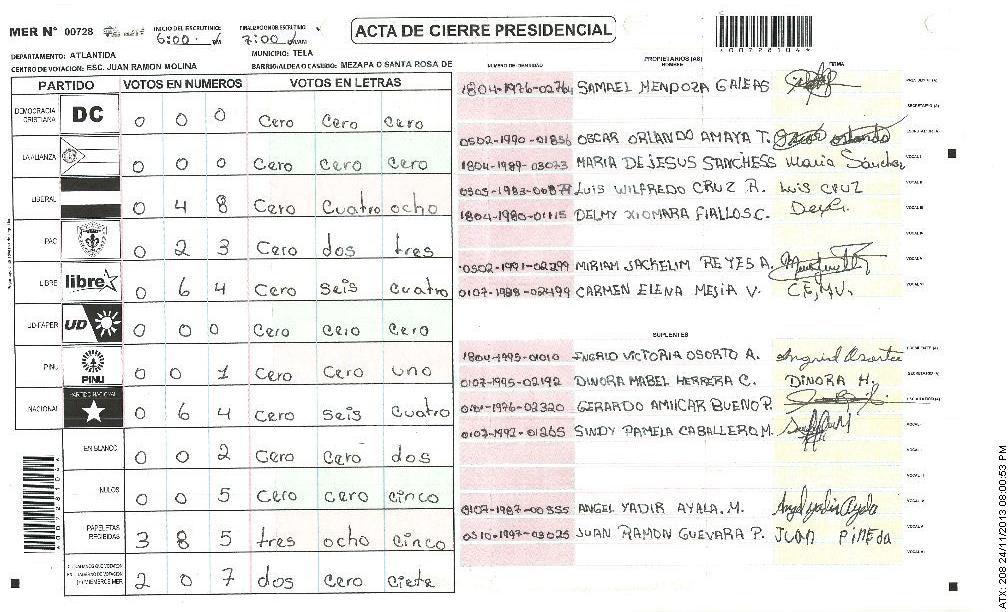 MER N° 00728 INICIO DEL ESCRUTINIO: 6:00 FINALIZACION DE ESCRUTINIO 7:00 ACTA DE CIERRE PRESIDENCIAL
DEPARTAMENTO: ATLANTIDA MUNICIPIO: TELA
CENTRO DE VOTACION: ESC. JUAN RAMON MOLINA BARRIO/ALDEA O CASERIO: MEZAPA O SANTA ROSA DE
PARTIDO VOTOS EN NUMEROS VOTOS EN LETRAS
DEMOCRACIA CRISTIANA DC 0 0 0 Cero Cero Cero
LA ALIANZA 0 0 0 Cero Cero Cero
LIBERAL 0 4 8 Cero Cuatro ocho
PAC 0 2 3 Cero dos tres
LIBRE libre 0 6 4 Cero seis cuatro
UD-FAPER UD 0 0 0 Cero Cero Cero
PINU PINU 0 0 1 Cero Cero uno
NACIONAL PARTIDO NACIONAL 0 6 4 Cero seis cuatro
EN BLANCO 0 0 2 Cero Cero dos
NULOS 0 0 5 Cero cero cinco
PAPELETAS RECIBIDAS 3 8 5 tres ocho cinco
2 0 7 dos cero ciete
NUMERO DE IDENTIDAD PROPIETARIOS (AS) NOMBRE FIRMA
1804-1976-02764 SAMAEL MENDOZA GALEAS
0502-1990-01856 OSCAR ORLANDO AMAYA T.
1804-1989-03023 MARIA DE JESUS SANCHESS Maria Sánchez
LUIS WILFREDO CRUZ R. LUIS CRUZ
1804-1980-01115 DELMY XIOMARA FIALLOS C.
0502-1991-02299 MIRIAM JACKELIM REYES A.
0107-1988-02499 CARMEN ELENA MEJIA V. C.E.M.V.
SUPLENTES
1804-1995-01010 INGRID VICTORIA OSORTO A. Ingrid Osorto
0107-1995-02192 DINORA MABEL HERRERA C. DINORA H.
0101-1976-02320 GERARDO AMILCAR BUENO P.
0107-1992-01265 SINDY PAMELA CABALLERO M.
0107-1987-00555 ANGEL YADIR AYALA. M. Angel yadir Ayala
0510-1997-03025 JUAN RAMON GUEVARA P. JUAN PINEDA
ATX: 208 24/11/2013 08:00:53 PM